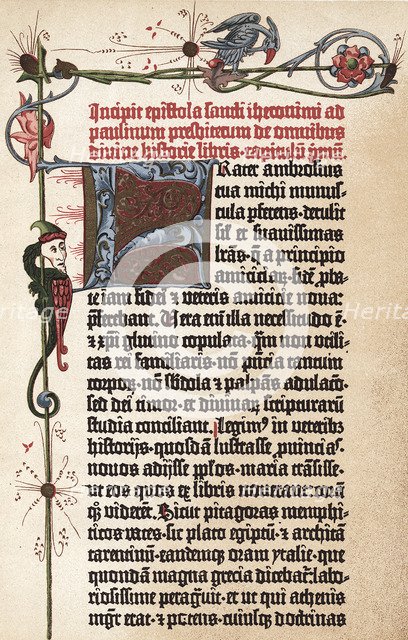 Incipit epistola sancti iheronimi ad
paulinum presbiterum de omnibus
divine historie libris · capitulū pᵐū ·
Frater ambrosius
tua michi munus-
cula ꝑferens · detulit
sil̄ et suavissimas
lr̄as · q̄ a principio
amicicia⁊ · fidē ꝓba-
te iam fidei ⁊ veteris amicicie nova :
p̄ferebant · Vera em̄ illa necessitudo ē ·
⁊ xp̄i glutino copulata · qm̄ non utili-
tas rei familiaris · nō p̄ncia tantum
corpoꝝ · nō s̄bdola ⁊ palpās adulacō ·
sed dei timor · et divinaꝝ scripturarum
studia conciliant · Legim⁹ in veterib⁊
historijs · quosdā lustrasse ꝓuīcias ·
novos adijsse pp̄los · maria trāsisse ·
ut eos quos ex libris noverant : corā
q⁊ viderēt · Sicut pitagoras memphi-
ticos vates · sic plato egiptū · et architā
tarentinū · eandemq⁊ oram ytalie · que
quondā magna grecia dicebat : labo-
riosissime peragravit · et ut qui athenis
mg̅r erat · ⁊ potens · cuiusq⁊ doctrinas